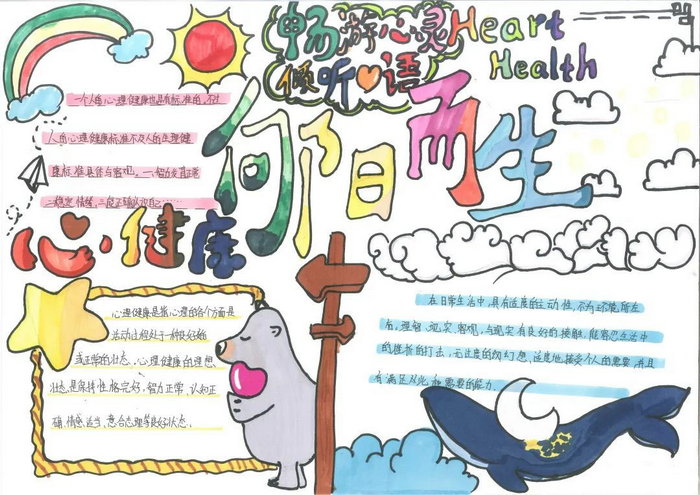 畅游心灵 Heart
倾听心语 Health
向阳而生
一个人的心理健康也是有标准的,不过
人的心理健康标准不及人的生理健
康标准具体与客观。一、智力发育正常
二稳定情绪,三能正确认识自己……
心健康
心理健康是指心理的各个方面是
活动过程处于一种良好好
或正常的状态。心理健康的理想
状态是保持性格完好、智力正常、认知正
确、情感适当、意合态理等良好状态.
在日常生活中,具有适度的主动性,不为环境所左
右,理智、现实、客观,与现实有良好的接触,能容忍生活中
的挫折的打击,无过度的幻想,适度地接受个人的需要,并且
有满足此种需要的能力.